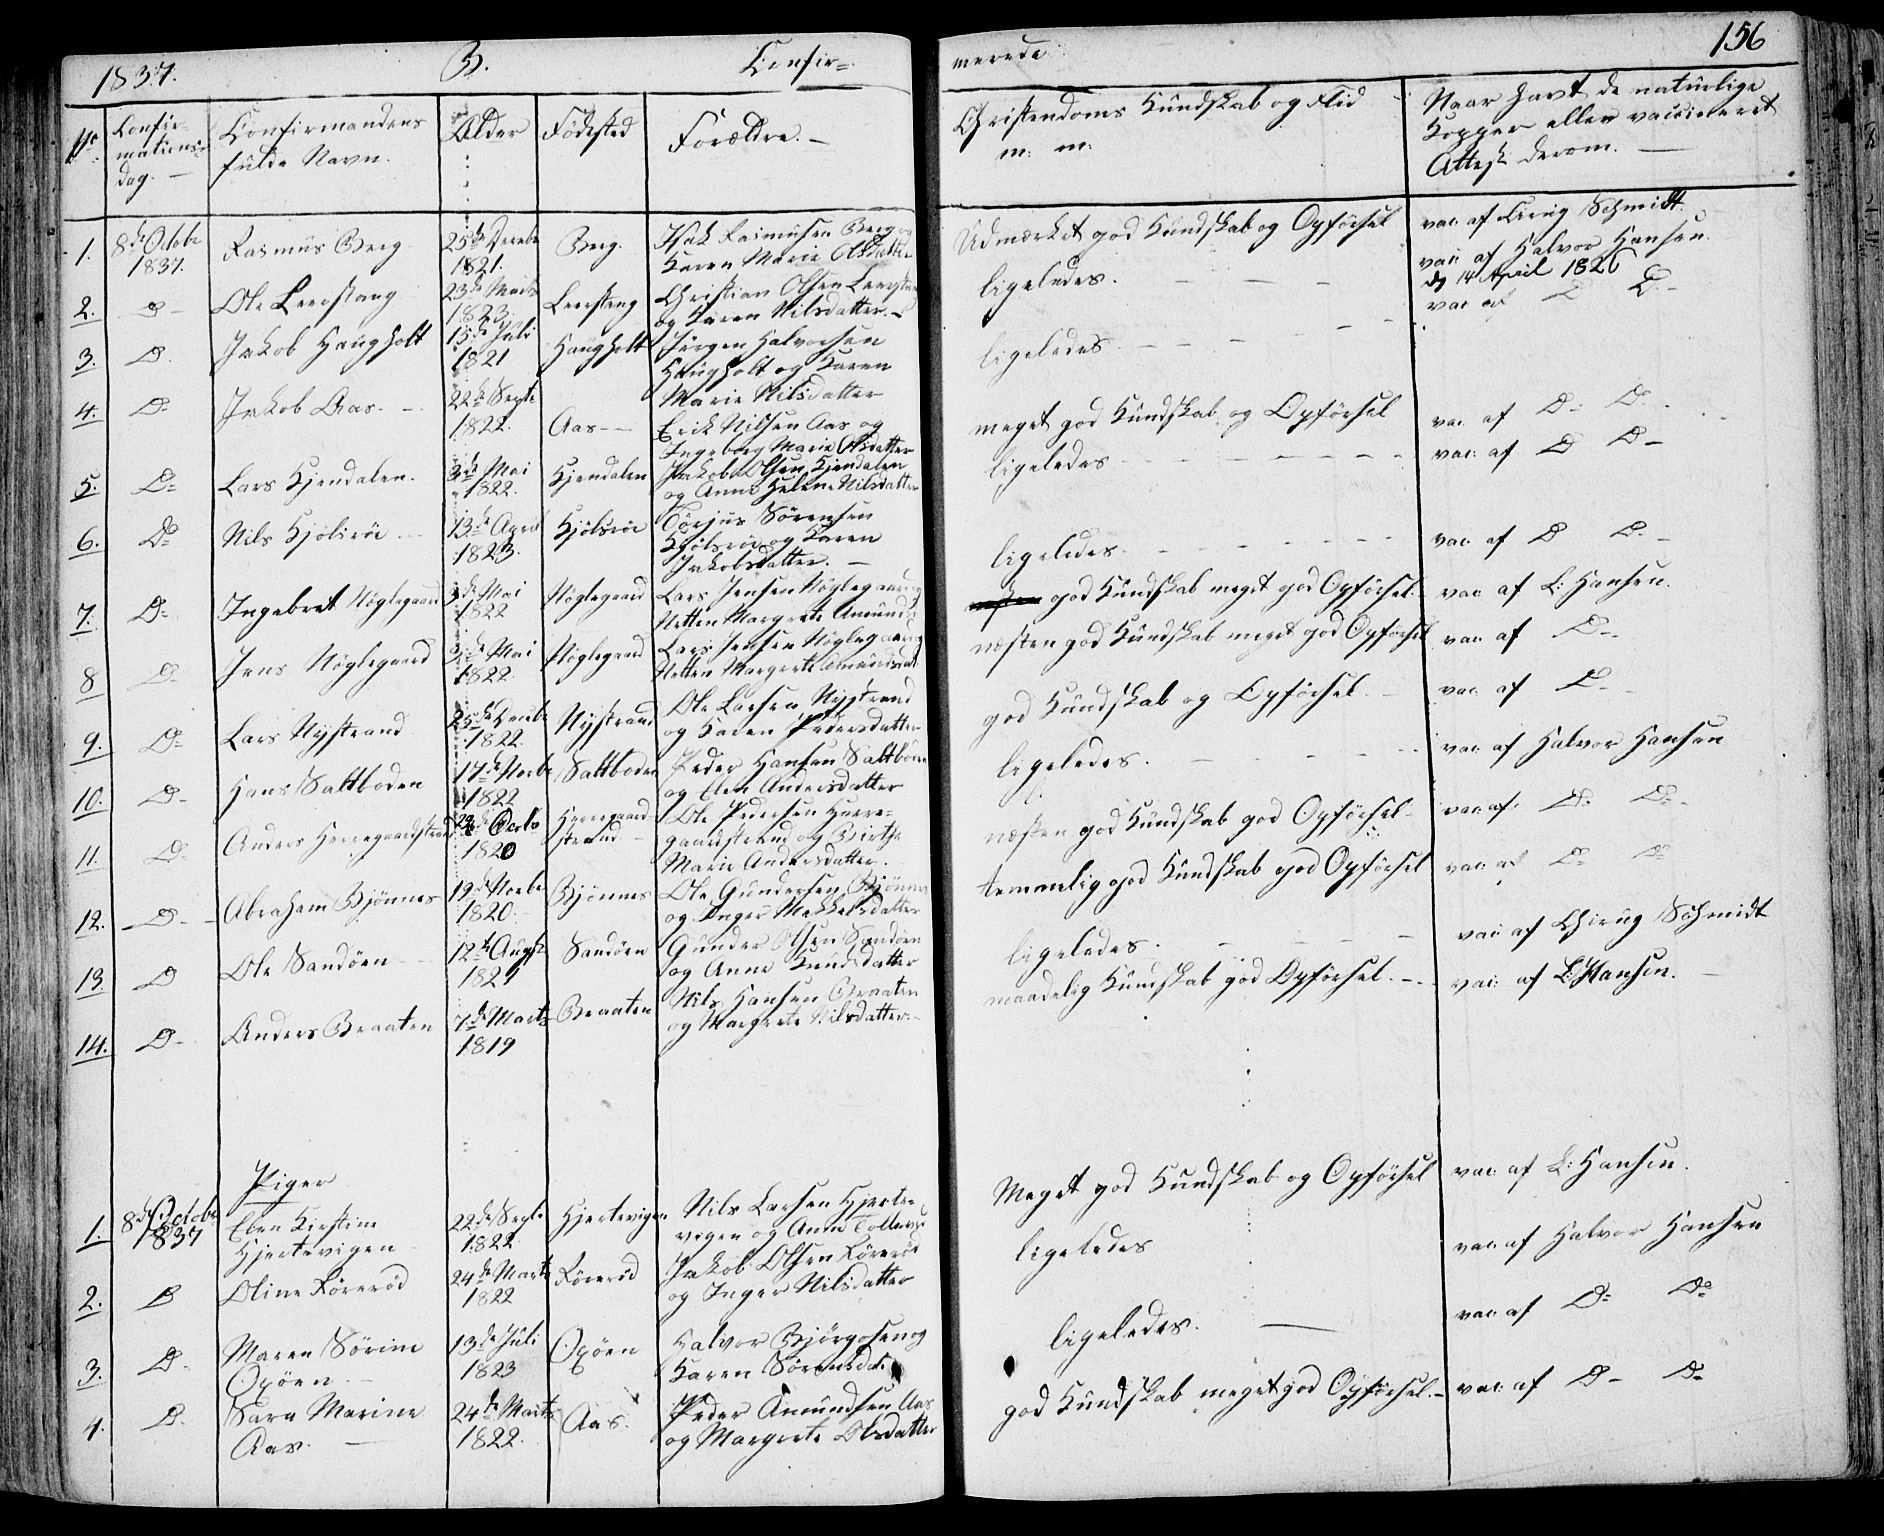 1837. B. Confir= merede 156
No Confirmations dag. Confirmandens fulde Navn. Alder Fødested Forældre. Christendoms Kundskab og Flid m: m: Naar havt de naturlige Kopper eller vaccineret Attest derom.
1. 8de Octobr 1837. Rasmus Berg 25de Decebr 1821. Berg. Isak Rasmusen Berg og Karen Marie Olsdatter Udmærket god Kundskab og Opførsel vac: af Chirug Schmidt
2. Do Ole Leerstang 23de Marts 1823. Leerstang Christian Olsen Leerstang og Karen Nilsdatter. ligeledes. vac: af Halvor Hansen. d. 14 April 1826
3. Do Jakob Haugholt 15de Juli 1821 Haugholt Jørgen Halvorsen Haugholt og Karen Marie Nilsdatter ligeledes vac af Do Do
4. Do Jakob Aas. 22de Septr 1822. Aas Erik Nilsen Aas og Ingeborg Marie Olsdatter meget god Kundskab og Opførsel vac. af Do Do
5. Do Lars Kjendalen. 3de Mai 1822. Kjendalen Jakob Olsen Kjendalen og Anne Helene Nilsdatter ligeledes vac: af Do Do
6. Do Nils Kjølsrøe 13de April 1823. Kjølsrøe Torjus Sørensen Kjølsrøe og Karen Jakobsdatter. ligeledes. vac: af Do Do
7. Do Ingebret Nøglegaard 3de Mai 1822 Nøglegaard Lars Jensen Nøglegaard og Netten Margrete Amunds god Kundskab meget god Opførsel. vac: af L: Hansen.
8 Do Jens Nøglegaard 3de Mai 1822. Nøglegaard Lars Jensen Nøglegaard Netten Margrete Amundsdat næsten god Kundskab meget god Opførsel vac: af Do
9. Do Lars Nystrand 25de 1822. Nystrand Ole Larsen Nystrand og Karen Pedersdatter god Kundskab og Opførsel. vac: af Do
10. Do Hans Saltboden 17de Novbr 1822 Saltboden Peder Hansen Saltboden og Elen Andersdatter ligeledes. vac: af Halvor Hansen
11. Do Anders Herregaardstrand Octo 1820 Herregaardstrand Ole Pedersen Herregaardstrand og Birthe Marie Andersdatter. næsten god Kundskab god Opførsel vac: af. Do Do
12. Do Abraham Bjønnes 19de Novbr 1820. Bjønnes Ole Gundersen Bjønnes og Inger Mekkelsdatter temmelig god Kundskab god Opførsel vac: af Do Do
13. Do Ole Sandøen 12te Augst 1821 Sandøen Gunder Olsen Sandøen og Anne Knudsdatter ligeledes. vac: af Chirug Schmidt
14. Do Anders Braaten 7de Marts 1819 Braaten Nils Hansen Braaten og Margrete Nilsdatter. maadelig Kundskab god Opførsel. vac: af L: Hansen.
Piger
1. 8de Octobr 1837 Elen Kirstine Hjertevigen 22de Septr 1822. Hjertevigen Nils Larsen Hjertevigen og Anne Meget god Kundskab og Opførsel vac: af L: Hansen.
2. Do Oline Rørerød 24de Marts 1822 Rørerød Jakob Olsen Rørerød og Inger Nilsdatter ligeledes vac: af Halvor Hansen
3. Do Maren Sørine Oxøen 13de Juli 1823 Oxøen Halvor og Karen Sørensdat ligeledes. vac: af Do Do
4. Do Sara Marine Aas. 24de Marts 1822. Aas. Peder Amundsen Aas og Margrete Olsdatter god Kundskab meget god Opførsel. vac: af Do Do